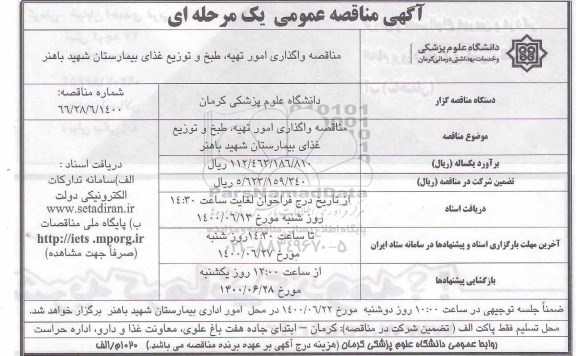 آگهی مناقصه عمومی یک مرحله ای
دانشگاه علوم پزشکی
وخدمات بهداشتی درمانی کرمان
مناقصه واگذاری امور تهیه، طبخ و توزیع غذای بیمارستان شهید باهنر
دستگاه مناقصه گزار
دانشگاه علوم پزشکی کرمان
شماره مناقصه:
۶۶/۲۸/۶/۱۴۰۰
موضوع مناقصه
مناقصه واگذاری امور تهیه، طبخ و توزیع
غذای بیمارستان شهید باهنر
برآورد یکساله (ریال)
۱۱۲/۴۶۳/۱۸۶/۸۱۰ ریال
تضمین شرکت در مناقصه (ریال)
۵/۶۲۳/۱۵۹/۳۴۰ ریال
دریافت اسناد
از تاریخ درج فراخوان لغایت ساعت ۱۴:۳۰
روز شنبه مورخ ۱۴۰۰/۰۶/۱۳
آخرین مهلت بارگزاری اسناد و پیشنهادها در سامانه ستاد ایران
تا ساعت ۱۴:۳۰ روز شنبه
مورخ ۱۴۰۰/۰۶/۲۷
بازگشایی پیشنهادها
از ساعت ۱۲:۰۰ روز یکشنبه
مورخ ۱۴۰۰/۰۶/۲۸
دریافت اسناد :
الف)سامانه تدارکات
الکترونیکی دولت
www.setadiran.ir
ب) پایگاه ملی مناقصات
http://iets .mporg.ir
(صرفاً جهت مشاهده)
ضمناً جلسه توجیهی در ساعت ۱۰:۰۰ روز دوشنبه مورخ ۱۴۰۰/۰۶/۲۲ در محل امور اداری بیمارستان شهید باهنر برگزار خواهد شد.
محل تسلیم فقط پاکت الف ( تضمین شرکت در مناقصه): کرمان – ابتدای جاده هفت باغ علوی، معاونت غذا و دارو، اداره حراست
روابط عمومی دانشگاه علوم پزشکی کرمان (هزینه درج آگهی بر عهده برنده مناقصه می باشد.) ۱۰۲۰م/الف